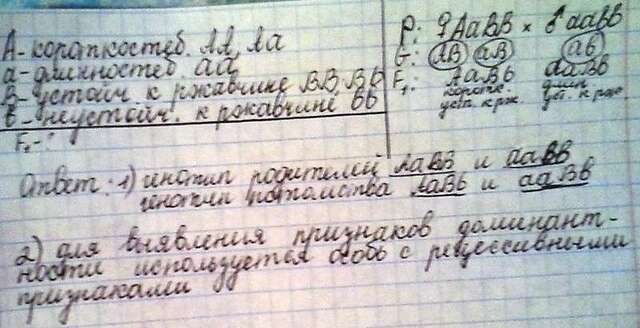 А - короткостеб. АА, Аа
а - длинностеб. аа
В - устойч. к ржавчине ВВ, Вb
b - неустойч. к ржавчине bb
F₁ - ?
P: ♀ AaBB × ♂ aaBB
G: AB aB ab
F₁: AaBb aaBb
коротк. длин.
уст. к рж. уст. к рж.
Ответ: 1) генотип родителей АаВВ и ааВВ
генотип потомства АаВb и ааВb
2) для выявления признаков доминант-
ности используется особь с рецессивными
признаками